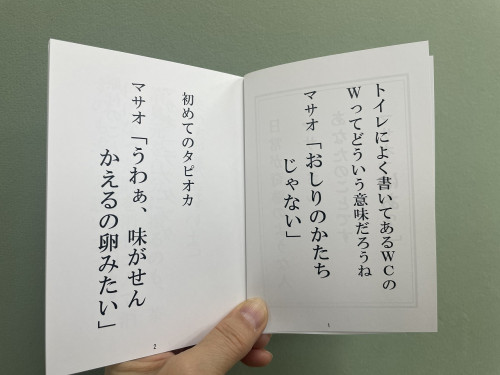 トイレによく書いてあるWCの
Wってどういう意味だろうね
マサオ「おしりのかたち
じゃない」
1
初めてのタピオカ
マサオ「うわぁ、味がせん
かえるの卵みたい」
2